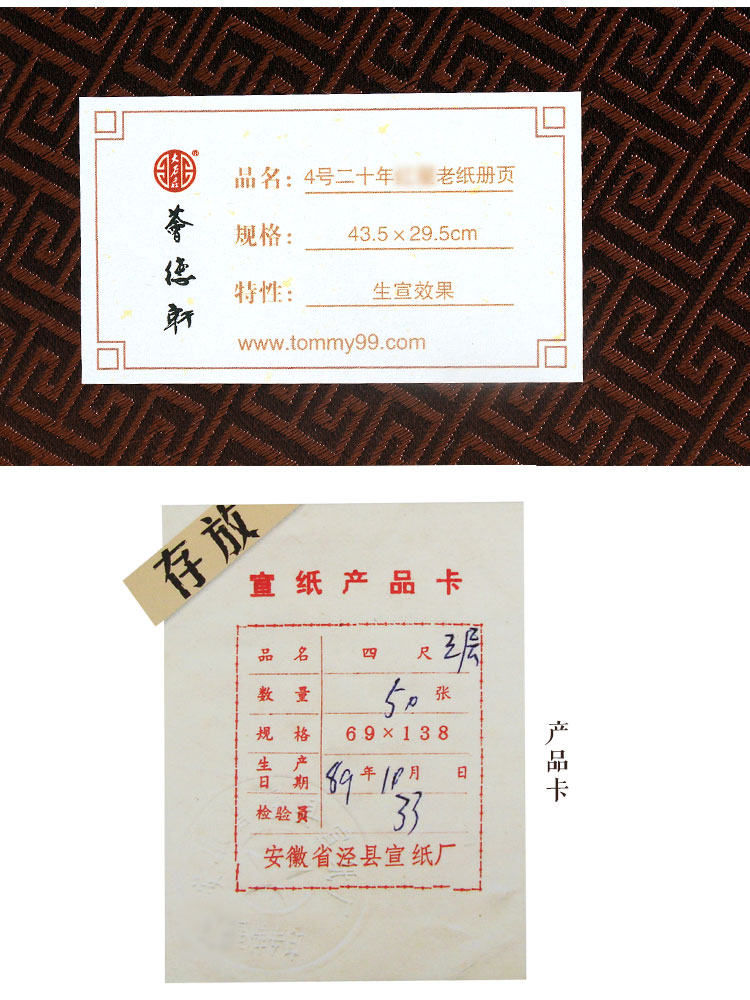 大石斋
荟德軒
品名: 4号二十年 老纸册页
规格: 43.5×29.5cm
特性: 生宣效果
www.tommy99.com
存放
宣纸产品卡
品名 四尺 三层
数量 50张
规格 69×138
生产日期 89年10月 日
检验员 33
安徽省泾县宣纸厂
产品卡